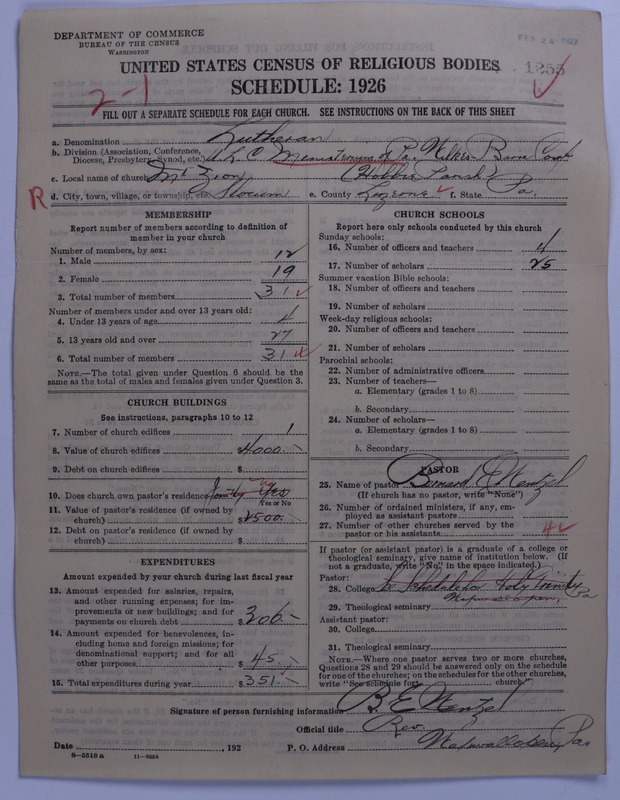 DEPARTMENT OF COMMERCE
BUREAU OF THE CENSUS
WASHINGTON
FEB 24 1927
1255
UNITED STATES CENSUS OF RELIGIOUS BODIES
SCHEDULE: 1926
2-1
FILL OUT A SEPARATE SCHEDULE FOR EACH CHURCH. SEE INSTRUCTIONS ON THE BACK OF THIS SHEET
a. Denomination Lutheran
b. Division (Association, Conference, Diocese, Presbytery, Synod, etc.) U.L.C. Ministerium of Pa. Wilkes-Barre Conf.
c. Local name of church Mt Zion (Hobbie Parish)
R d. City, town, village, or township, etc. Slocum e. County Luzerne f. State Pa.
MEMBERSHIP
Report number of members according to definition of
member in your church
Number of members, by sex:
1. Male 12
2. Female 19
3. Total number of members 31
Number of members under and over 13 years old:
4. Under 13 years of age 4
5. 13 years old and over 27
6. Total number of members 31
NOTE.—The total given under Question 6 should be
same as the total of males and females given under Question 3.
CHURCH BUILDINGS
See instructions, paragraphs 10 to 12
7. Number of church edifices 1
8. Value of church edifices $4000.—
9. Debt on church edifices $
10. Does church own pastor's residence Yes
Yes or No
11. Value of pastor's residence (if owned by
church) $2500.
12. Debt on pastor's residence (if owned by
church) $
EXPENDITURES
Amount expended by your church during last fiscal year
13. Amount expended for salaries, repairs,
and other running expenses; for im-
provements or new buildings; and for
payments on church debt $306.—
14. Amount expended for benevolences, in-
cluding home and foreign missions; for
denominational support; and for all
other purposes $45.—
15. Total expenditures during year $351.—
CHURCH SCHOOLS
Report here only schools conducted by this church
Sunday schools:
16. Number of officers and teachers 4
17. Number of scholars 25
Summer vacation Bible schools:
18. Number of officers and teachers
19. Number of scholars
Week-day religious schools:
20. Number of officers and teachers
21. Number of scholars
Parochial schools:
22. Number of administrative officers
23. Number of teachers—
a. Elementary (grades 1 to 8)
b. Secondary
24. Number of scholars—
a. Elementary (grades 1 to 8)
b. Secondary
PASTOR
25. Name of pastor Bernard E Wentzel
(If church has no pastor, write "None")
26. Number of ordained ministers, if any, em-
ployed as assistant pastors
27. Number of other churches served by the
pastor or his assistants 4
If pastor (or assistant pastor) is a graduate of a college or
theological seminary, give name of institution below. (If
not a graduate, write "No" in the space indicated.)
Pastor:
28. College See Schedule for Holy Trinity
Pa
29. Theological seminary
Assistant pastor:
30. College
31. Theological seminary
NOTE.—Where one pastor serves two or more churches,
Questions 28 and 29 should be answered only on the schedule
for one of the churches; on the schedules for the other churches,
write "See schedule for church."
Signature of person furnishing information B. E. Wentzel
Official title Rev.
Date , 192 P. O. Address Wapwallopen, Pa
8—5518 a 11—9064